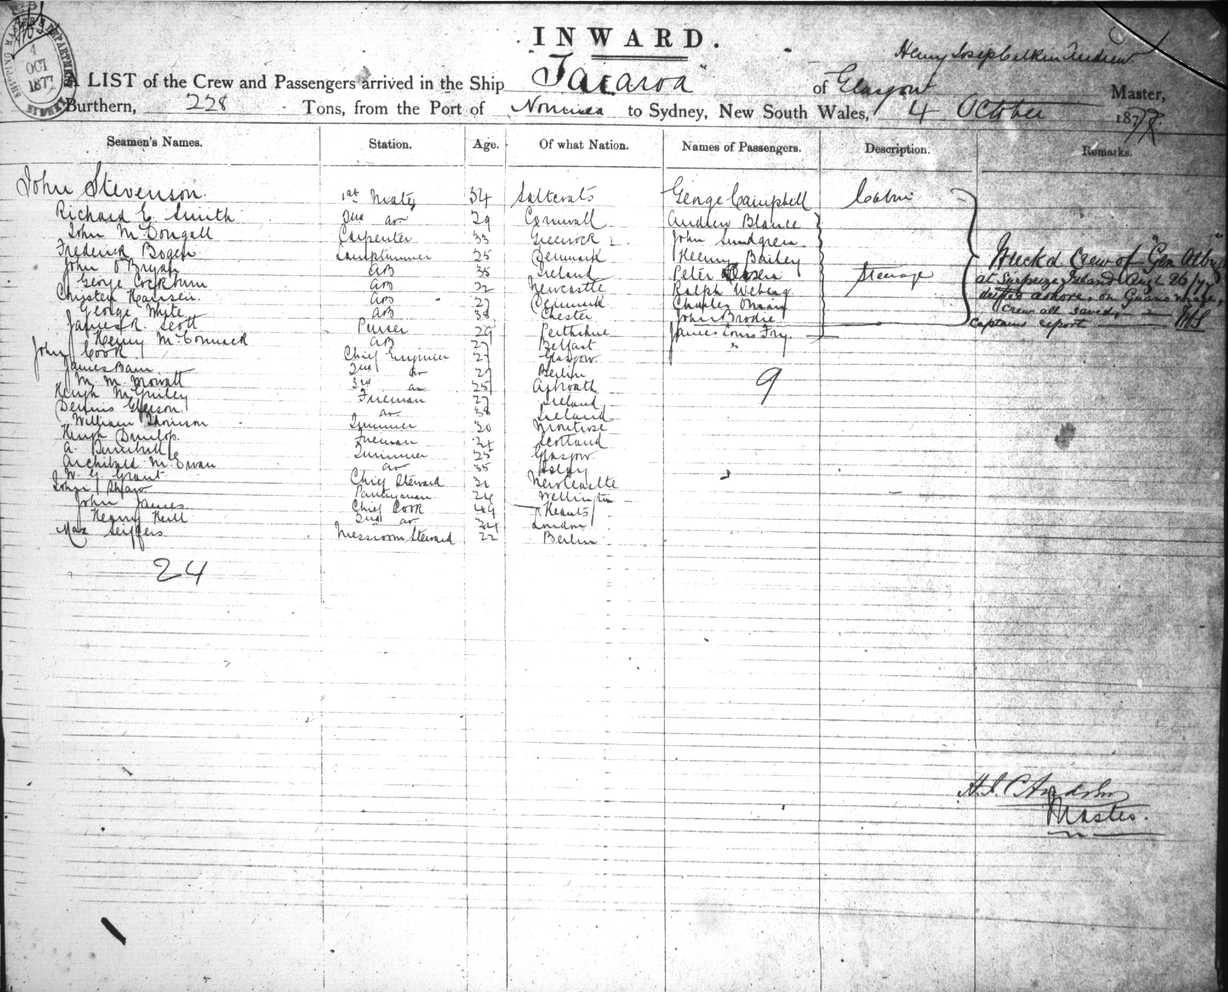 SHIPPING MASTER'S DEPARTMENT
4
OCT
1877
SYDNEY
INWARD.
Henry Joseph
A LIST of the Crew and Passengers arrived in the Ship "Taiaroa" of Glasgow Master,
Burthern, 228 Tons, from the Port of Noumea to Sydney, New South Wales, 4 October 1877
Seamen's Names. Station. Age. Of what Nation. Names of Passengers. Description. Remarks.
John Stevenson. 1st Mate 34 Saltcoats George Campbell Cabin
Richard C. Smith 2nd do 29 Cornwall Andrew Blance
John McDougall Carpenter 33 Greenock John Sundgren
Frederick Bogen Lamptrimmer 25 Denmark Henry Bailey Wreck'd Crew of "Gen
John O'Bryan AB 35 Ireland Peter Steerage at Surprise Island Augt 26/77
George Cockburn AB 32 Newcastle Ralph drifted ashore, on Guano
Chysten AB 27 Denmark Charles crew all saved,
George Whyte AB 38 Chester John Brodie Captains report
James R. Scott Purser 29 Perthshire James Louis Fry.
Henry McCormack AB 27 Belfast "
John Cook Chief Engineer 27 Glasgow
James Bain 2nd do 29 Berlin
M. M. 3rd do 25 9
Hugh McGinley Fireman 27 Ireland
Dennis do 38 Ireland
William Thomson Trimmer 20 Montrose
Hugh Dunlop. Fireman 24 Scotland
A. Trimmer 25 Glasgow
Archibald McEwan do 35 Islay
W. G. Grant Chief Steward 31 Newcastle
John Shaw Pantryman 24 Wellington
John James Chief Cook 49
Henry 2nd do 34 London
Max Seiffers Messroom Steward 22 Berlin
24
H. J. C.
Master.